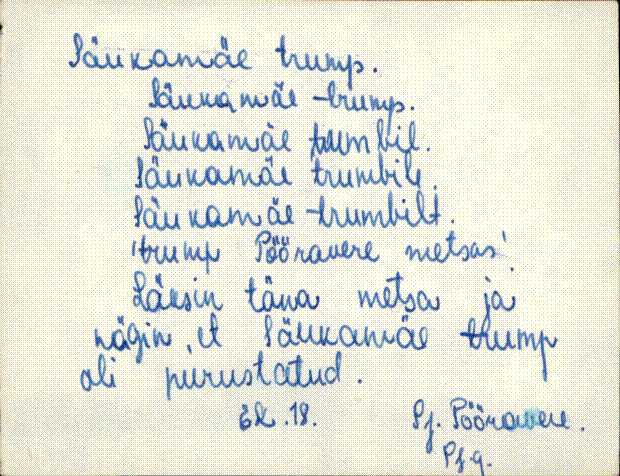 Säukamäe trump.
Säukamäe -trump.
Säukamäe trumbil.
Säukamäe trumbile.
Säukamäe -trumbilt.
'trump Pööravere metsas'.
Läksin täna metsa ja
nägin, et Säukamäe trump
oli purustatud.
Ek. 18. Pj. Pööravere.